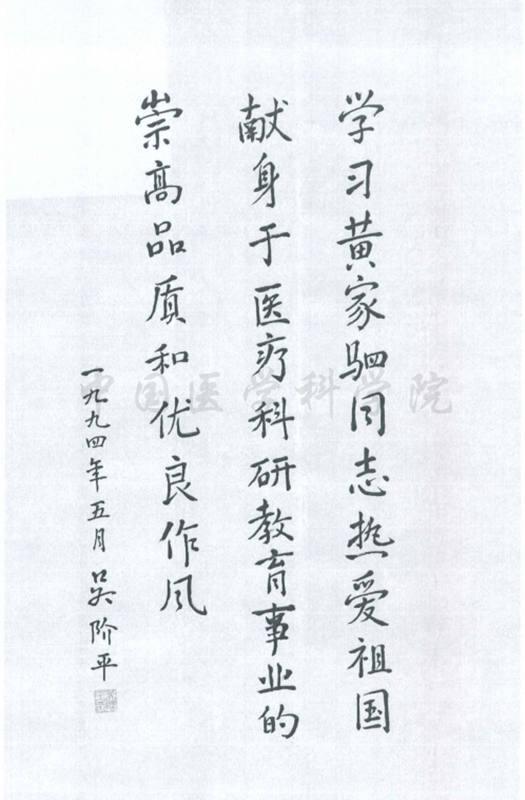 学习黄家驷同志热爱祖国
献身于医疗科研教育事业的
崇高品质和优良作风
一九九四年五月 吴阶平
中国医学科学院